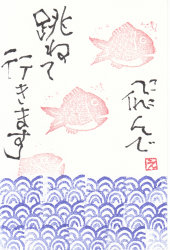 飛んで
跳ねて
行きます